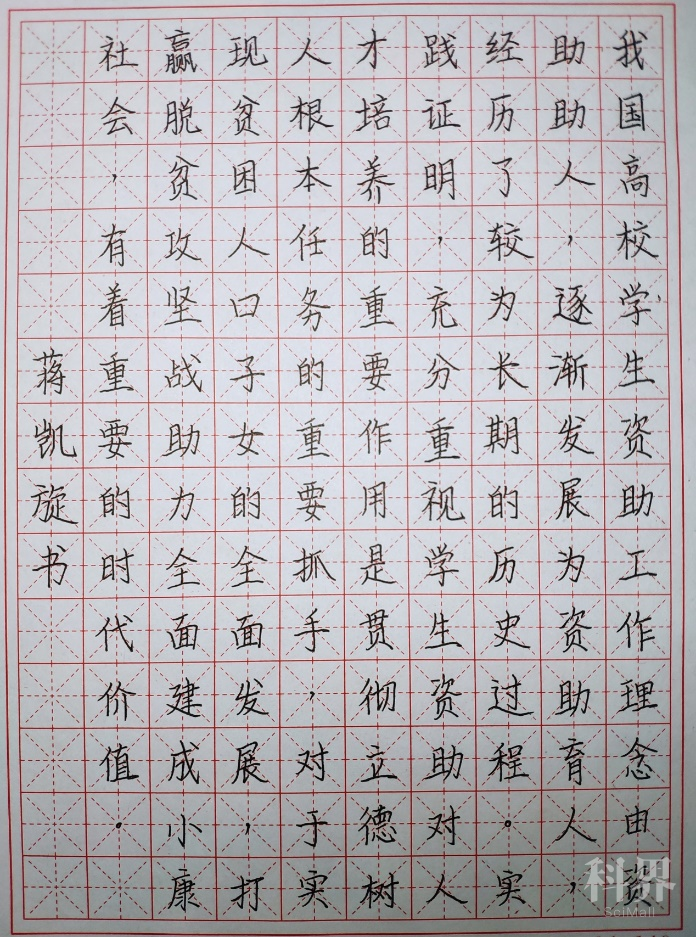 我国高校学生资助工作理念由资
助助人，逐渐发展为资助育人，
经历了较为长期的历史过程。实
践证明，充分重视学生资助对人
才培养的重要作用是贯彻立德树
人根本任务的重要抓手，对于实
现贫困人口子女的全面发展，打
赢脱贫攻坚战助力全面建成小康
社会，有着重要的时代价值。
蒋凯旋书
科界
SciMall